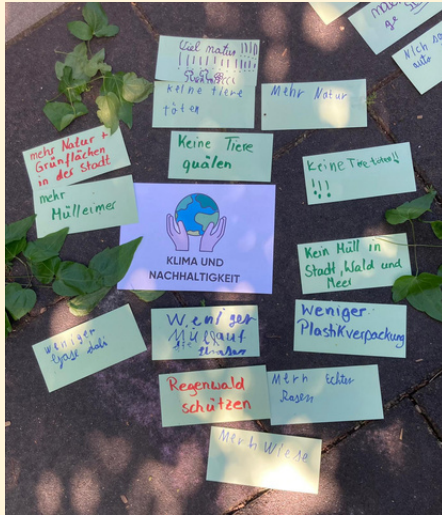 Viel natur !!!!
keine tiere
töten
Mehr Natur
mehr Natur +
Grünflächen
in der Stadt
Keine Tiere
quälen
Keine Tiere töten!!
!!!
mehr
Mülleimer
KLIMA UND
NACHHALTIGKEIT
Kein Müll in
Stadt, Wald und
Meer
Weniger
Weniger
Müll auf
Weniger
Plastikverpackung
Regenwald
schützen
Merh Echter
Rasen
Merh Wiese